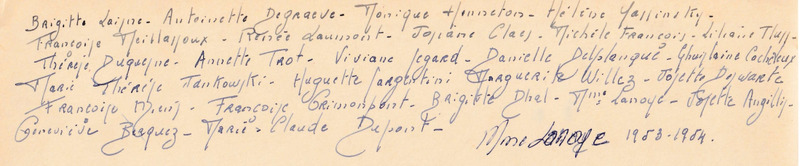 Brigitte Laisne - Antoinette Degraeve - Monique Henneton - Hélène Yassinsky -
Françoise Meillassoux - Renée Laumont - Josiane Claes - Michèle François - Liliane
Thérèse Duquesne - Annette Trot - Viviane Segard - Danielle Delplanque - Ghyslaine
Marie Thérèse Tankowski - Huguette Sargentini Marguerite Willez - Josette Dewarte
Françoise Grimonpont - Brigitte Dhal - Mme Lanoye - Josette Angillis -
Geneviève Becquez - Marie-Claude Dupont -
Mme Lanoye 1953-1954.